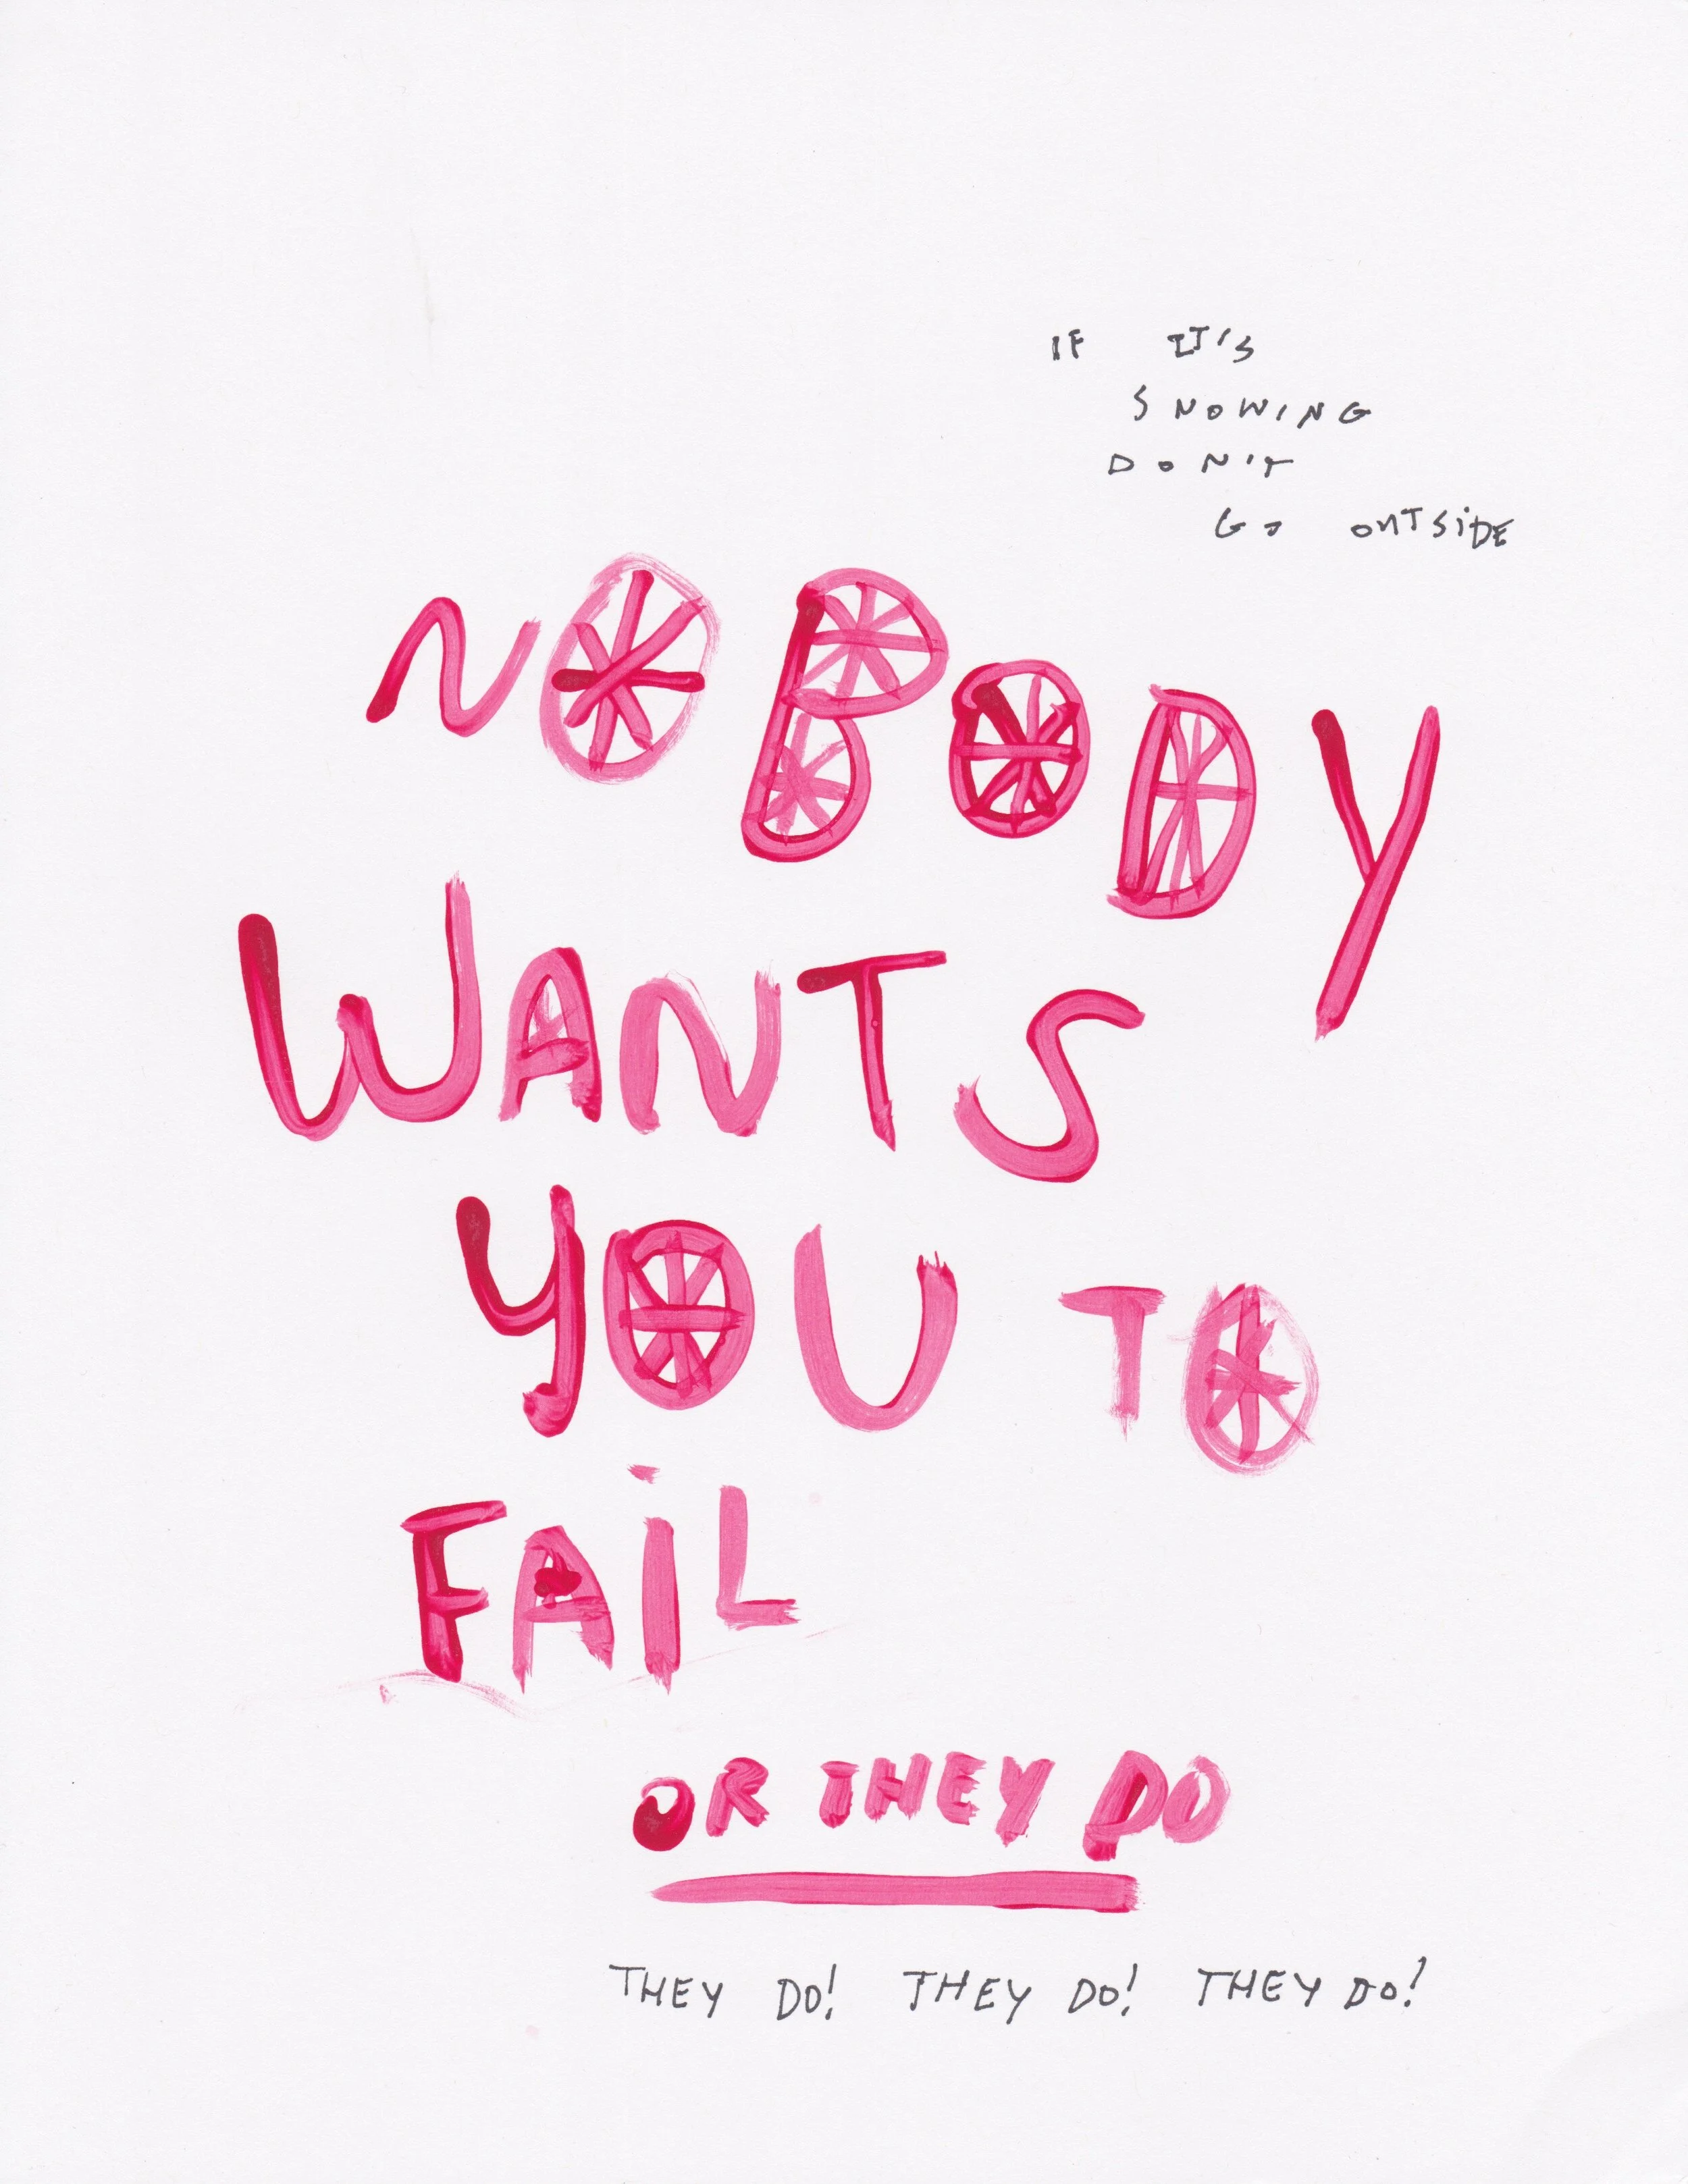 IF IT'S
SNOWING
DON'T
GO OUTSIDE
NOBODY
WANTS
YOU TO
FAiL
OR THEY DO
THEY DO! THEY DO! THEY DO!